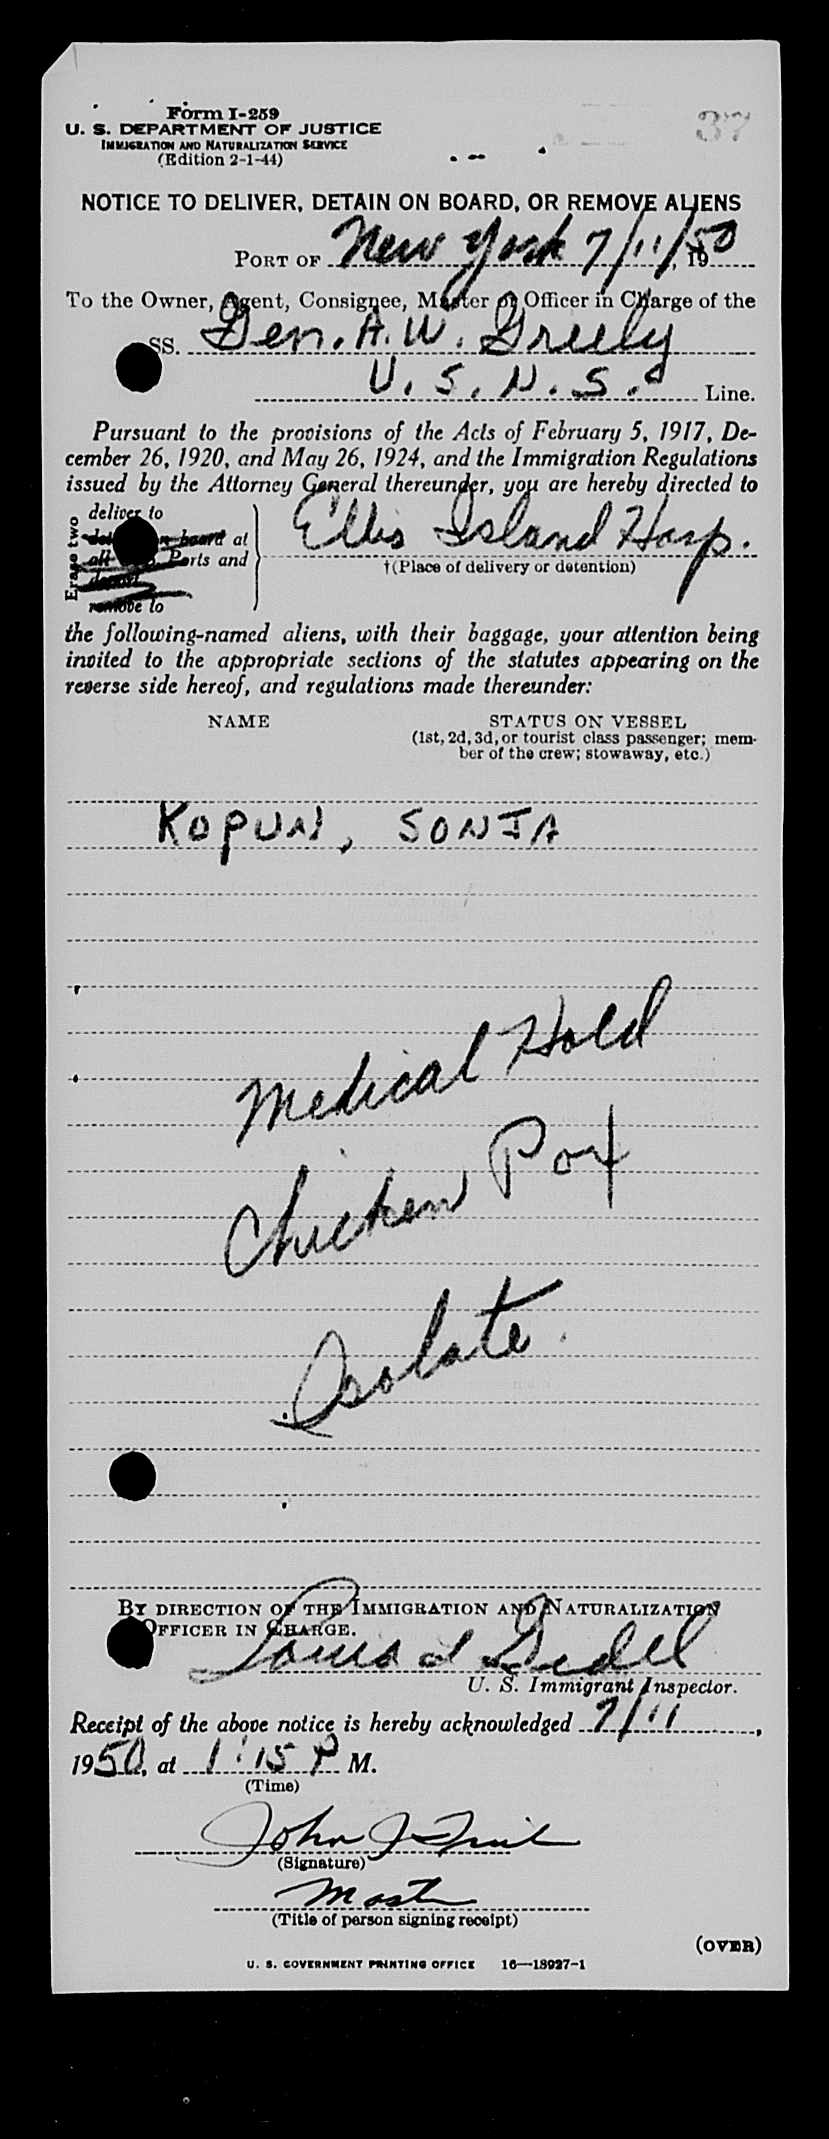 37
Form I-259
U. S. DEPARTMENT OF JUSTICE
IMMIGRATION AND NATURALIZATION SERVICE
(Edition 2-1-44)
NOTICE TO DELIVER, DETAIN ON BOARD, OR REMOVE ALIENS
PORT OF New York 7/11/, 1950
To the Owner, Agent, Consignee, Master or Officer in Charge of the
SS. Gen. A. W. Greely
U. S. N. S. Line.
Pursuant to the provisions of the Acts of February 5, 1917, De-
cember 26, 1920, and May 26, 1924, and the Immigration Regulations
issued by the Attorney General thereunder, you are hereby directed to
Erase two
deliver to
board at
all Ports and
remove to
Ellis Island Hosp.
†(Place of delivery or detention)
the following-named aliens, with their baggage, your attention being
invited to the appropriate sections of the statutes appearing on the
reverse side hereof, and regulations made thereunder:
NAME STATUS ON VESSEL
(1st, 2d, 3d, or tourist class passenger; mem-
ber of the crew; stowaway, etc.)
KOPUN, SONJA
Medical Hold
Chicken Pox
Isolate.
BY DIRECTION OF THE IMMIGRATION AND NATURALIZATION
OFFICER IN CHARGE.
U. S. Immigrant Inspector.
Receipt of the above notice is hereby acknowledged 7/11,
1950, at 1:15 P M.
(Time)
John J
(Signature)
Master
(Title of person signing receipt)
(OVER)
U. S. GOVERNMENT PRINTING OFFICE 16—18927-1